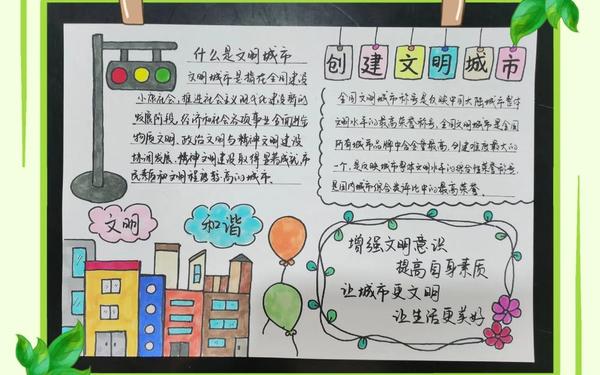 什么是文明城市
文明城市是指在全面建设
小康社会,推进社会主义现代化建设新的
发展阶段,经济和社会各项事业全面进步
物质文明、政治文明与精神文明建设
协调发展,精神文明建设取得显著成就,市
民素质和文明程度较高的城市.
创建文明城市
全国文明城市称号是反映中国大陆城市整体
文明水平的最高荣誉称号,全国文明城市是全国
所有城市品牌中含金量最高,创建难度最大的
一个,是反映城市整体文明水平的综合性荣誉称号,
是国内城市综合类评比中的最高荣誉.
文明
和谐
增强文明意识
提高自身素质
让城市更文明
让生活更美好